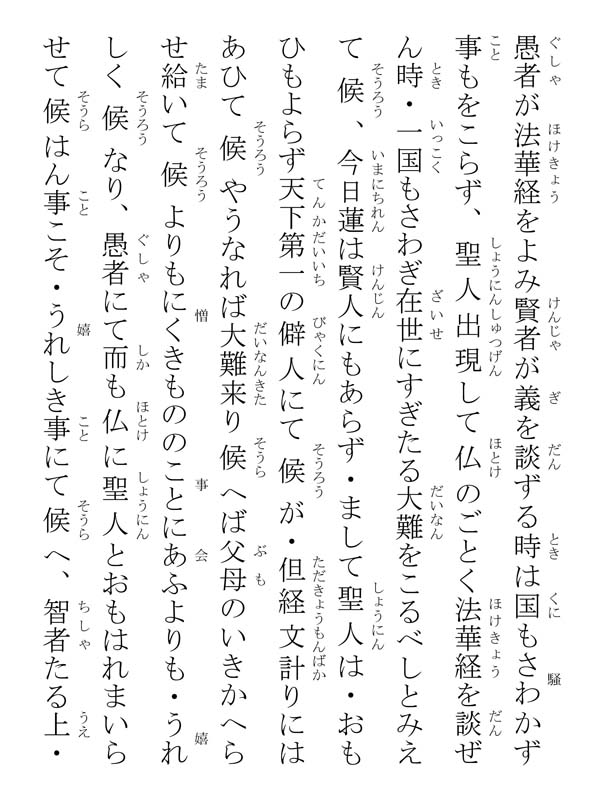 愚者が法華経をよみ賢者が義を談ずる時は国もさわかず
事もをこらず、聖人出現して仏のごとく法華経を談ぜ
ん時・一国もさわぎ在世にすぎたる大難をこるべしとみえ
て候、今日蓮は賢人にもあらず・まして聖人は・おも
ひもよらず天下第一の僻人にて候が・但経文計りには
あひて候やうなれば大難来り候へば父母のいきかへら
せ給いて候よりもにくきもののことにあふよりも・うれ
しく候なり、愚者にて而も仏に聖人とおもはれまいら
せて候はん事こそ・うれしき事にて候へ、智者たる上・